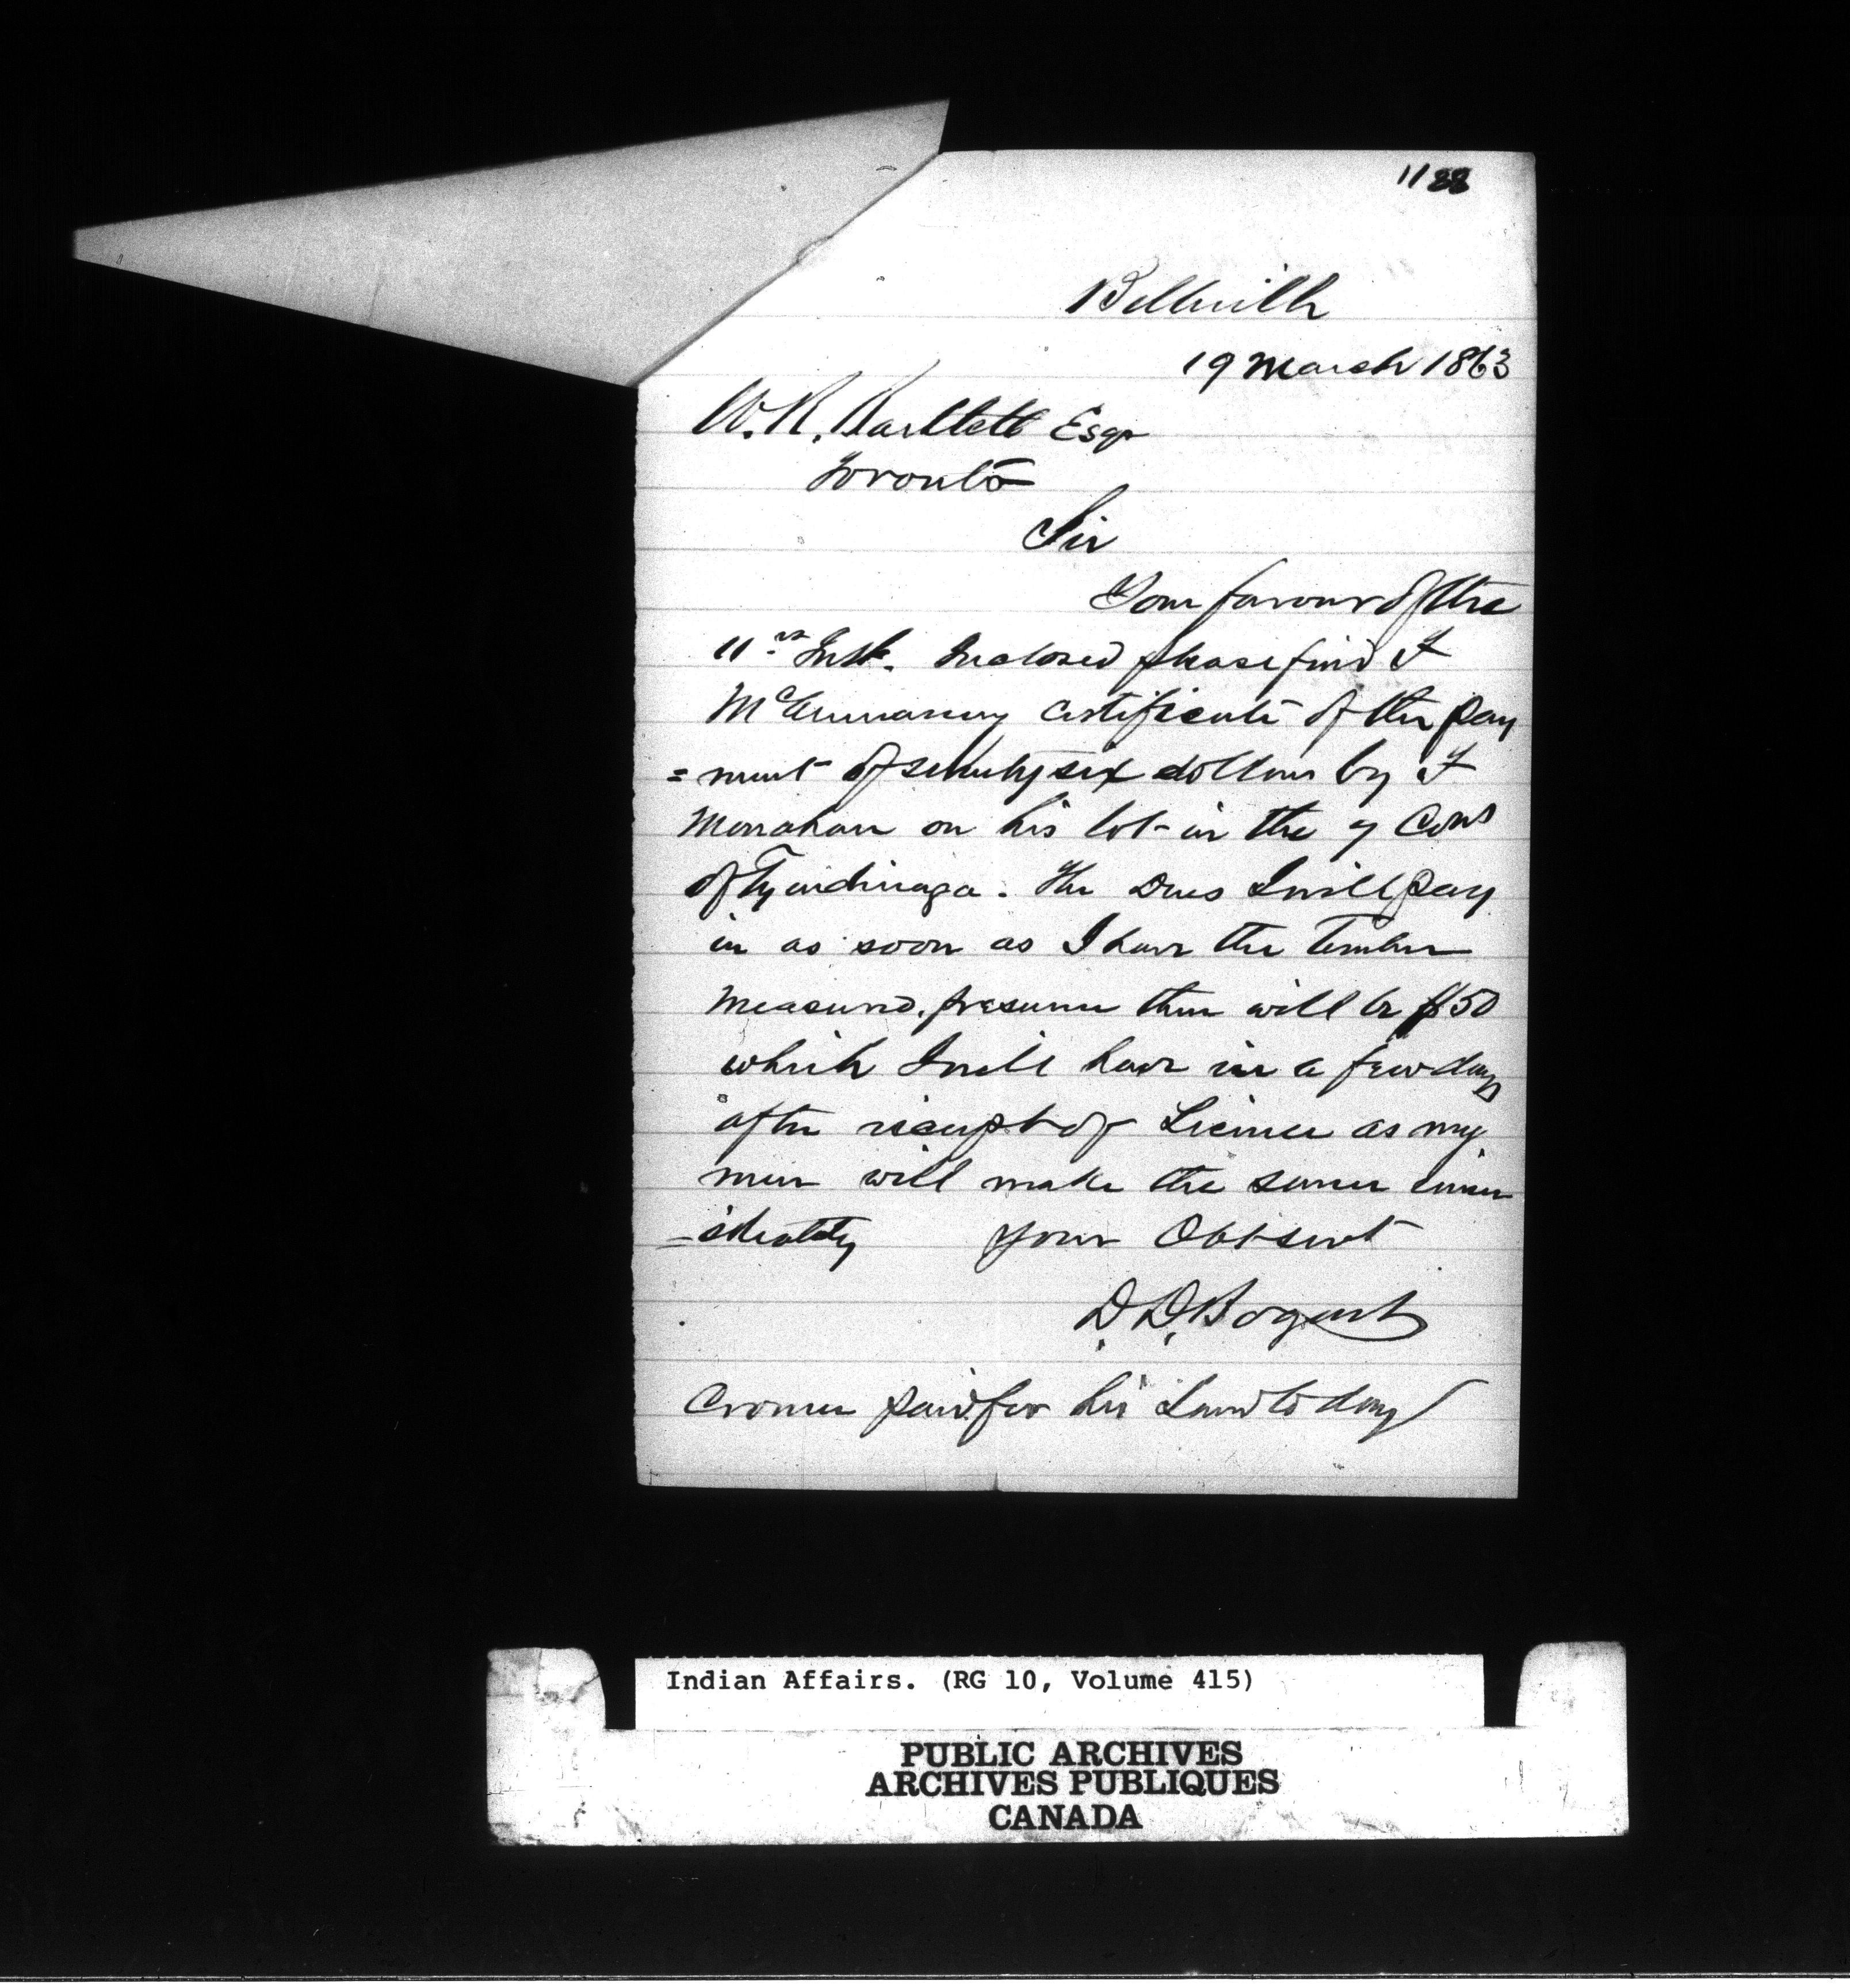 1188
Bellville
19 March 1863
W. R. Bartlett Esqr
Toronto
Sir
Your favour of the
11th Inst. Inclosed please find T
certificate of the pay
=ment of seventy six dollars by T
Monahan on his lot in the Cons
of Tyendinaga. The Dues I will pay
in as soon as I have the Timber
measured. presume there will be $50
which I will have in a few days
after receipt of Licence as my
men will make the same imm
=ediately Your Obt servt
D. D. Bogart
Cromer paid for his Land to day
Indian Affairs. (RG 10, Volume 415)
PUBLIC ARCHIVES
ARCHIVES PUBLIQUES
CANADA